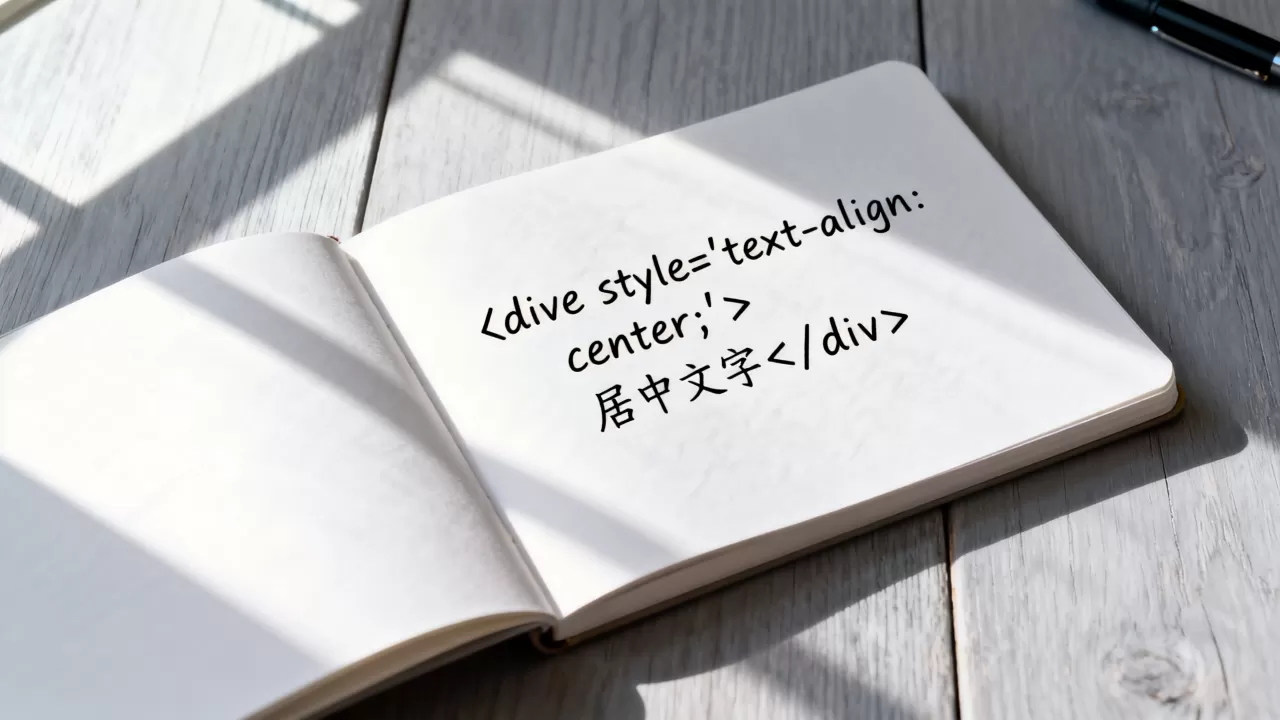 <dive style='text-align:
center;'>
居中文字</div>